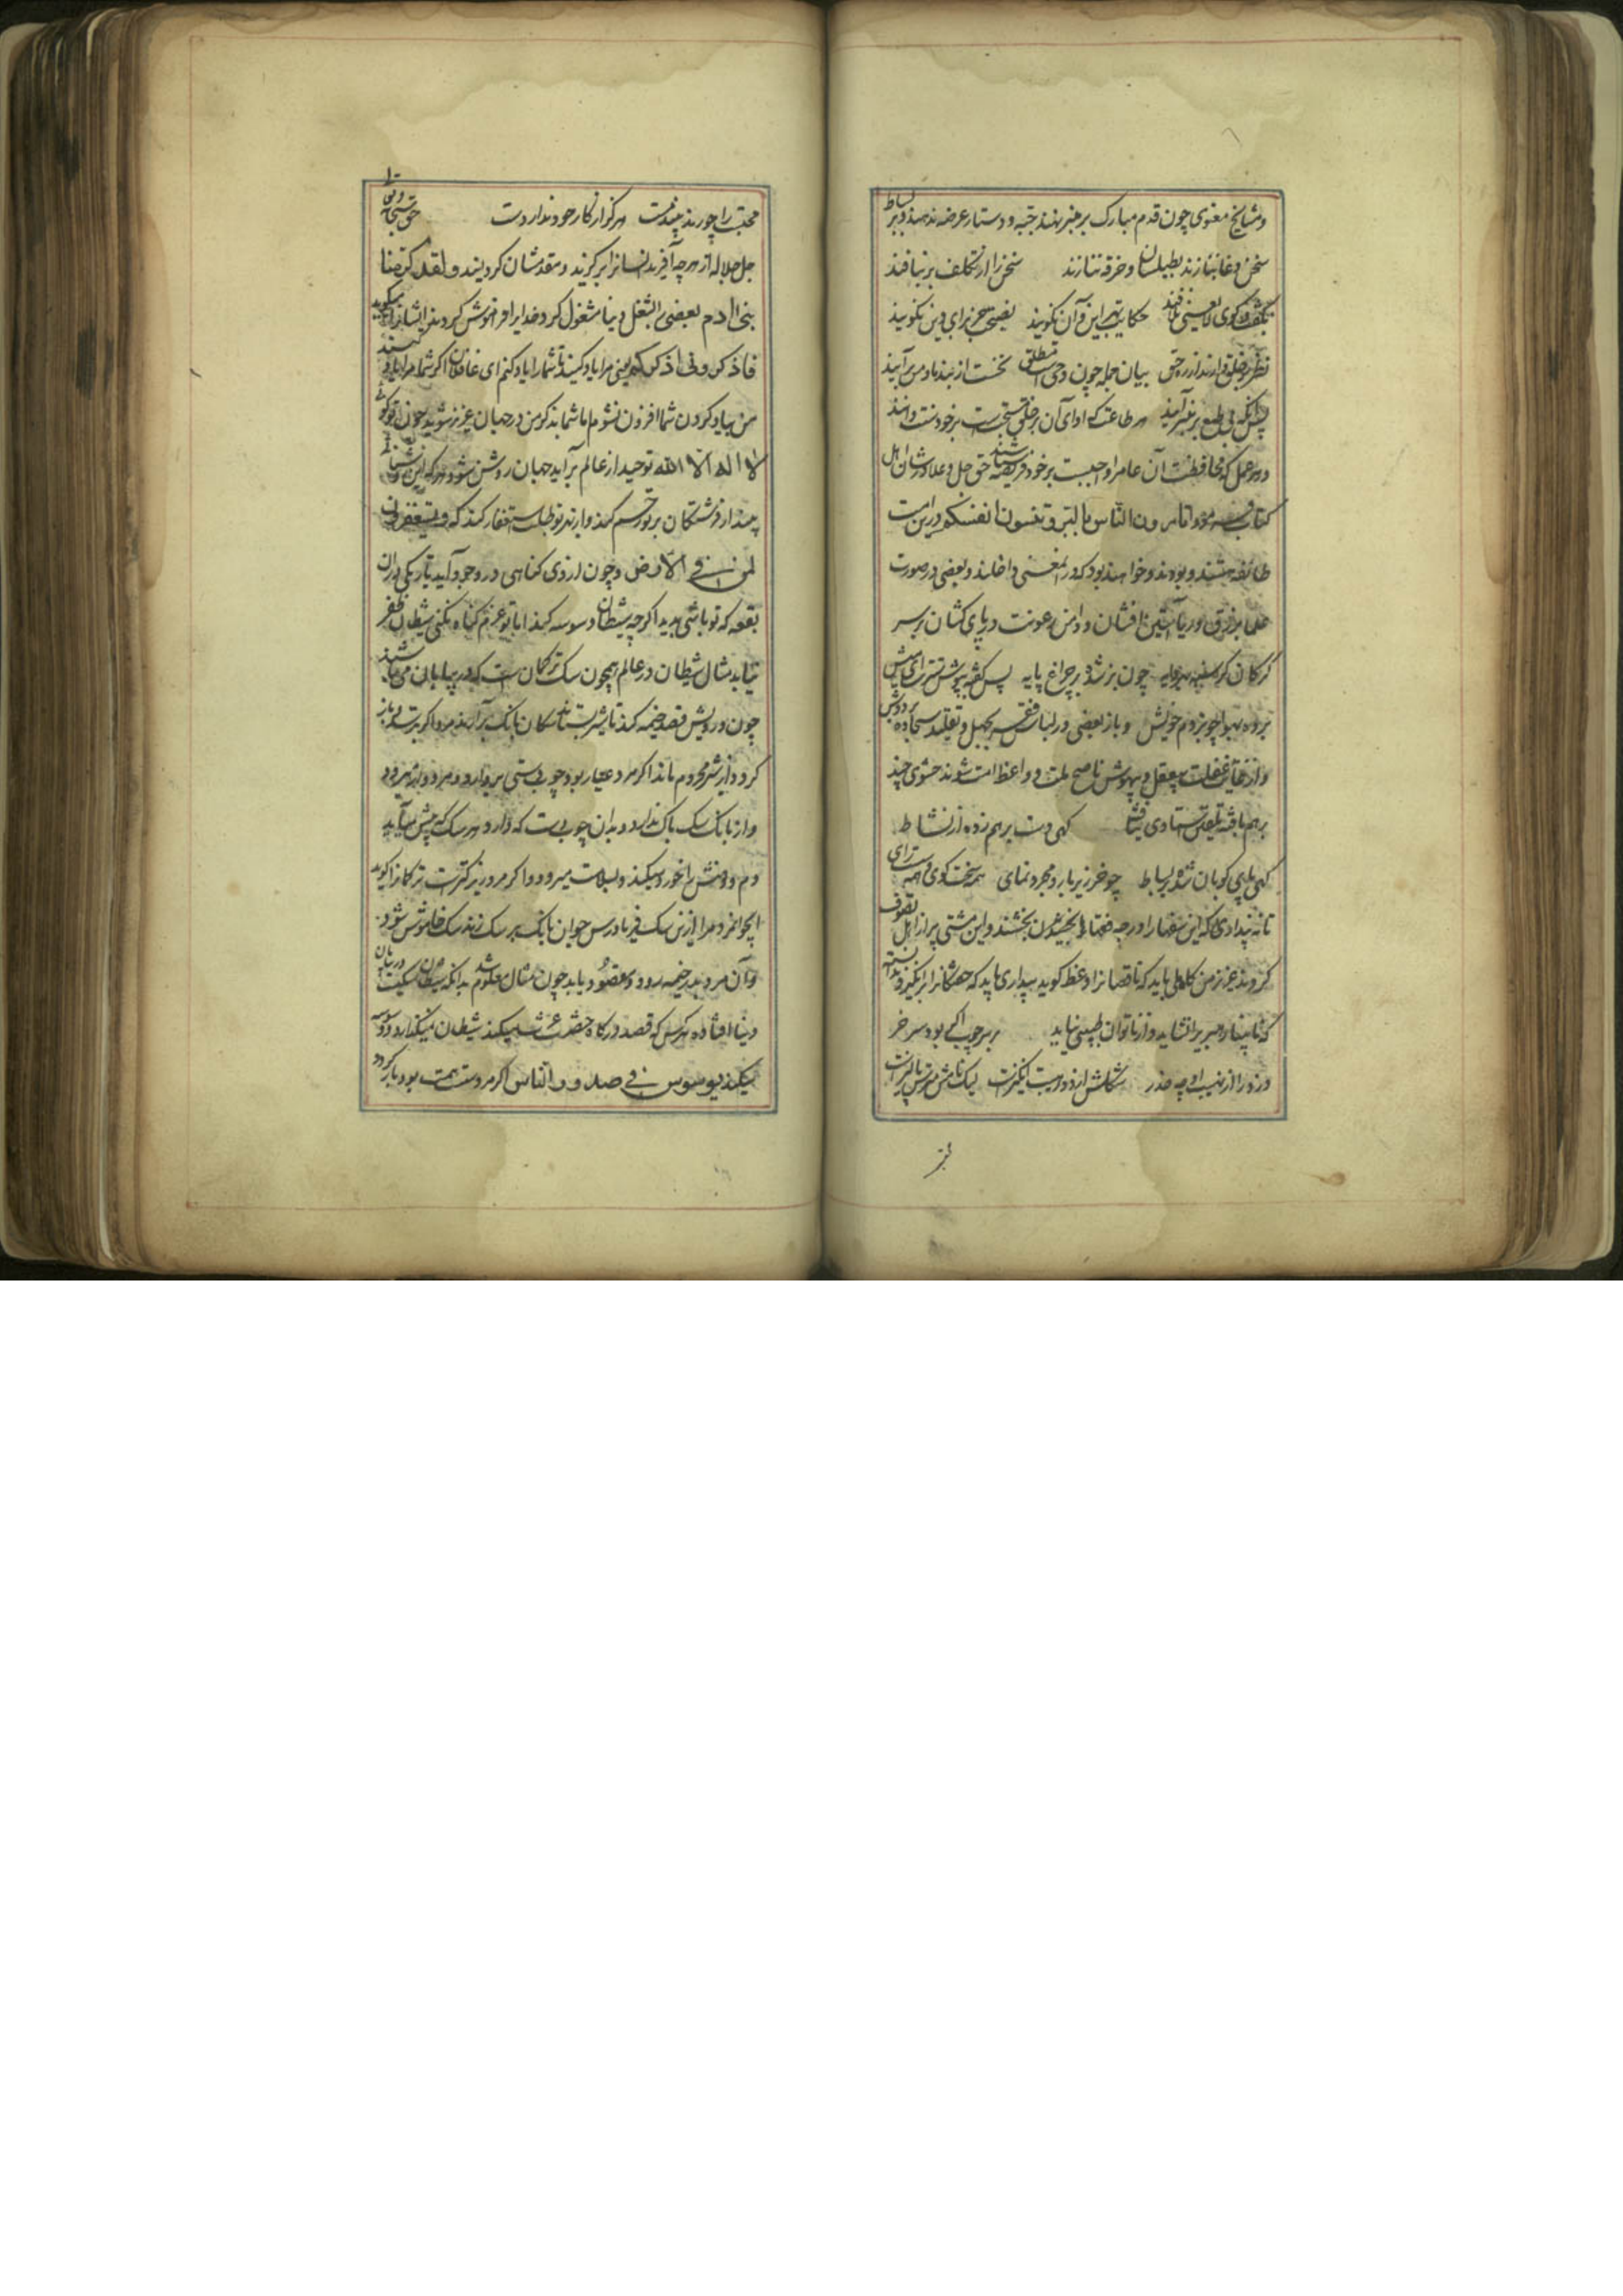 و مشایخ معنوی چون قدم مبارک بر منبر نهند جبه و دستار عرضه ندهند و بر بساط
سخن دغا نبازند بطیلسان و خرقه ننازند سخن را از تکلف بر نبافند
حکایت بهر این و آن نگویند نصیحت جز برای دین نگویند
نظر بر خلق وا زندارند از ره حق بیان جمله چون وحی مطلق نخست از بند باد من برآیند
پس آنکه بی طمع بر منبر آیند هر طاعت که ادای آن بر خلق مستحب است بر خود سنت دانند
و هر عمل که محافظت آن عام را واجبست بر خود فریضه شناسند حق جل و علا در شان اهل
کتاب فرمود اتامرون الناس بالبر و تنسون انفسکم در این امت
طائفه هستند و بودند و خواهند بود که در این معنی داخلند و بعضی در صورت
علما بزرق و ریا آستین افشان و دامن رعونت در پای کشان بر سر
چون بز شده بر چراغ پایه پس
برده بهوا چو بز دم خویش و باز بعضی در لباس فقر بجهل و تقلید سجاده بر دوش
و از غایت غفلت بیعقل و بیهوش ناصح ملت و واعظ امت شوند حشوی چند
برهم بافته کهی دست برهم زده از نشاط
کهی پای کوبان شده بر بساط چو خر زیر بار و مجرد نمای همه سخت کوی و همه سست رای
تا نه پنداری که این سفها را درجه
کردند عزیز من کاملی باید که ناقصانرا وعظ گوید بیداری باید که خفتکانرا برانگیزد
که نابینا رهبری را نشاید و از ناتوان طبیبی نیاید بر سر چوب اکی بود سر خر
دزد را از نهیب او چه حذر شکلش ارزد و اهیبت انگیزست لیک
محبت را چو رند پسندست هر کو از کار خود ندارد دست حق سبحانه و تعالی
جل جلاله از هر چه آفرید انسانرا برگزید و مقدمشان گردانید و لقد کرمنا
بنی آدم بعضی را بشغل دنیا مشغول کرد خدایرا فراموش کردند ایشانرا میگوید
فاذکرونی اذکرکم یعنی مرا یاد کنید تا شما را یاد کنم ای غافلان اگر شما مرا یاد کنید
من بیاد کردن شما افزون نشوم اما شما بذکر من در جهان عزیز شوید چون
لا اله الا الله توحید از عالم برآید جهان روشن شود و هر که این
پسندد از فرشتگان بر تو ترحم کنند و از بهر تو طلب استغفار کنند که و یستغفرون
لمن فی الارض و چون از وی کناهی در وجود آید تاریکی در آن
بقعه که تو باشی پدید آید اگر چه شیطان وسوسه کند اما تا تو عزم کناه نکنی شیطان ظفر
نیابد مثال شیطان در عالم همچون سک ترکمان است که در بیابان می باشند
چون درویش قصد خیمه کند تا شربتی ستاند سکان بانک برآرند مرد اگر بترسد و باز
گردد از شیر محروم ماند اگر مرد عیار بود چوبدستی بردارد و مردوار میرود
و از بانک سک باک ندارد و بدان چوبدست که دارد هر سک که پیش می آید
دم و دمش را خورد میکند و بسلامت میرود و اگر مرد زیرکترست ترکانرا گوید
ای جوانمرد مرا از این سک فریاد رس جوان بانک بر سک زند سک خاموش شود
و آن مرد بدر خیمه رود و مقصود یابد چون مثال معلوم شد بدانکه شیطان سکیست در بیابان
دنیا افتاده هر کس که قصد درگاه حضرت عزت میکند شیطان نمیگذارد و وسوسه
میکند یوسوس فی صدور الناس اگر مرد سست همت بود باز گردد